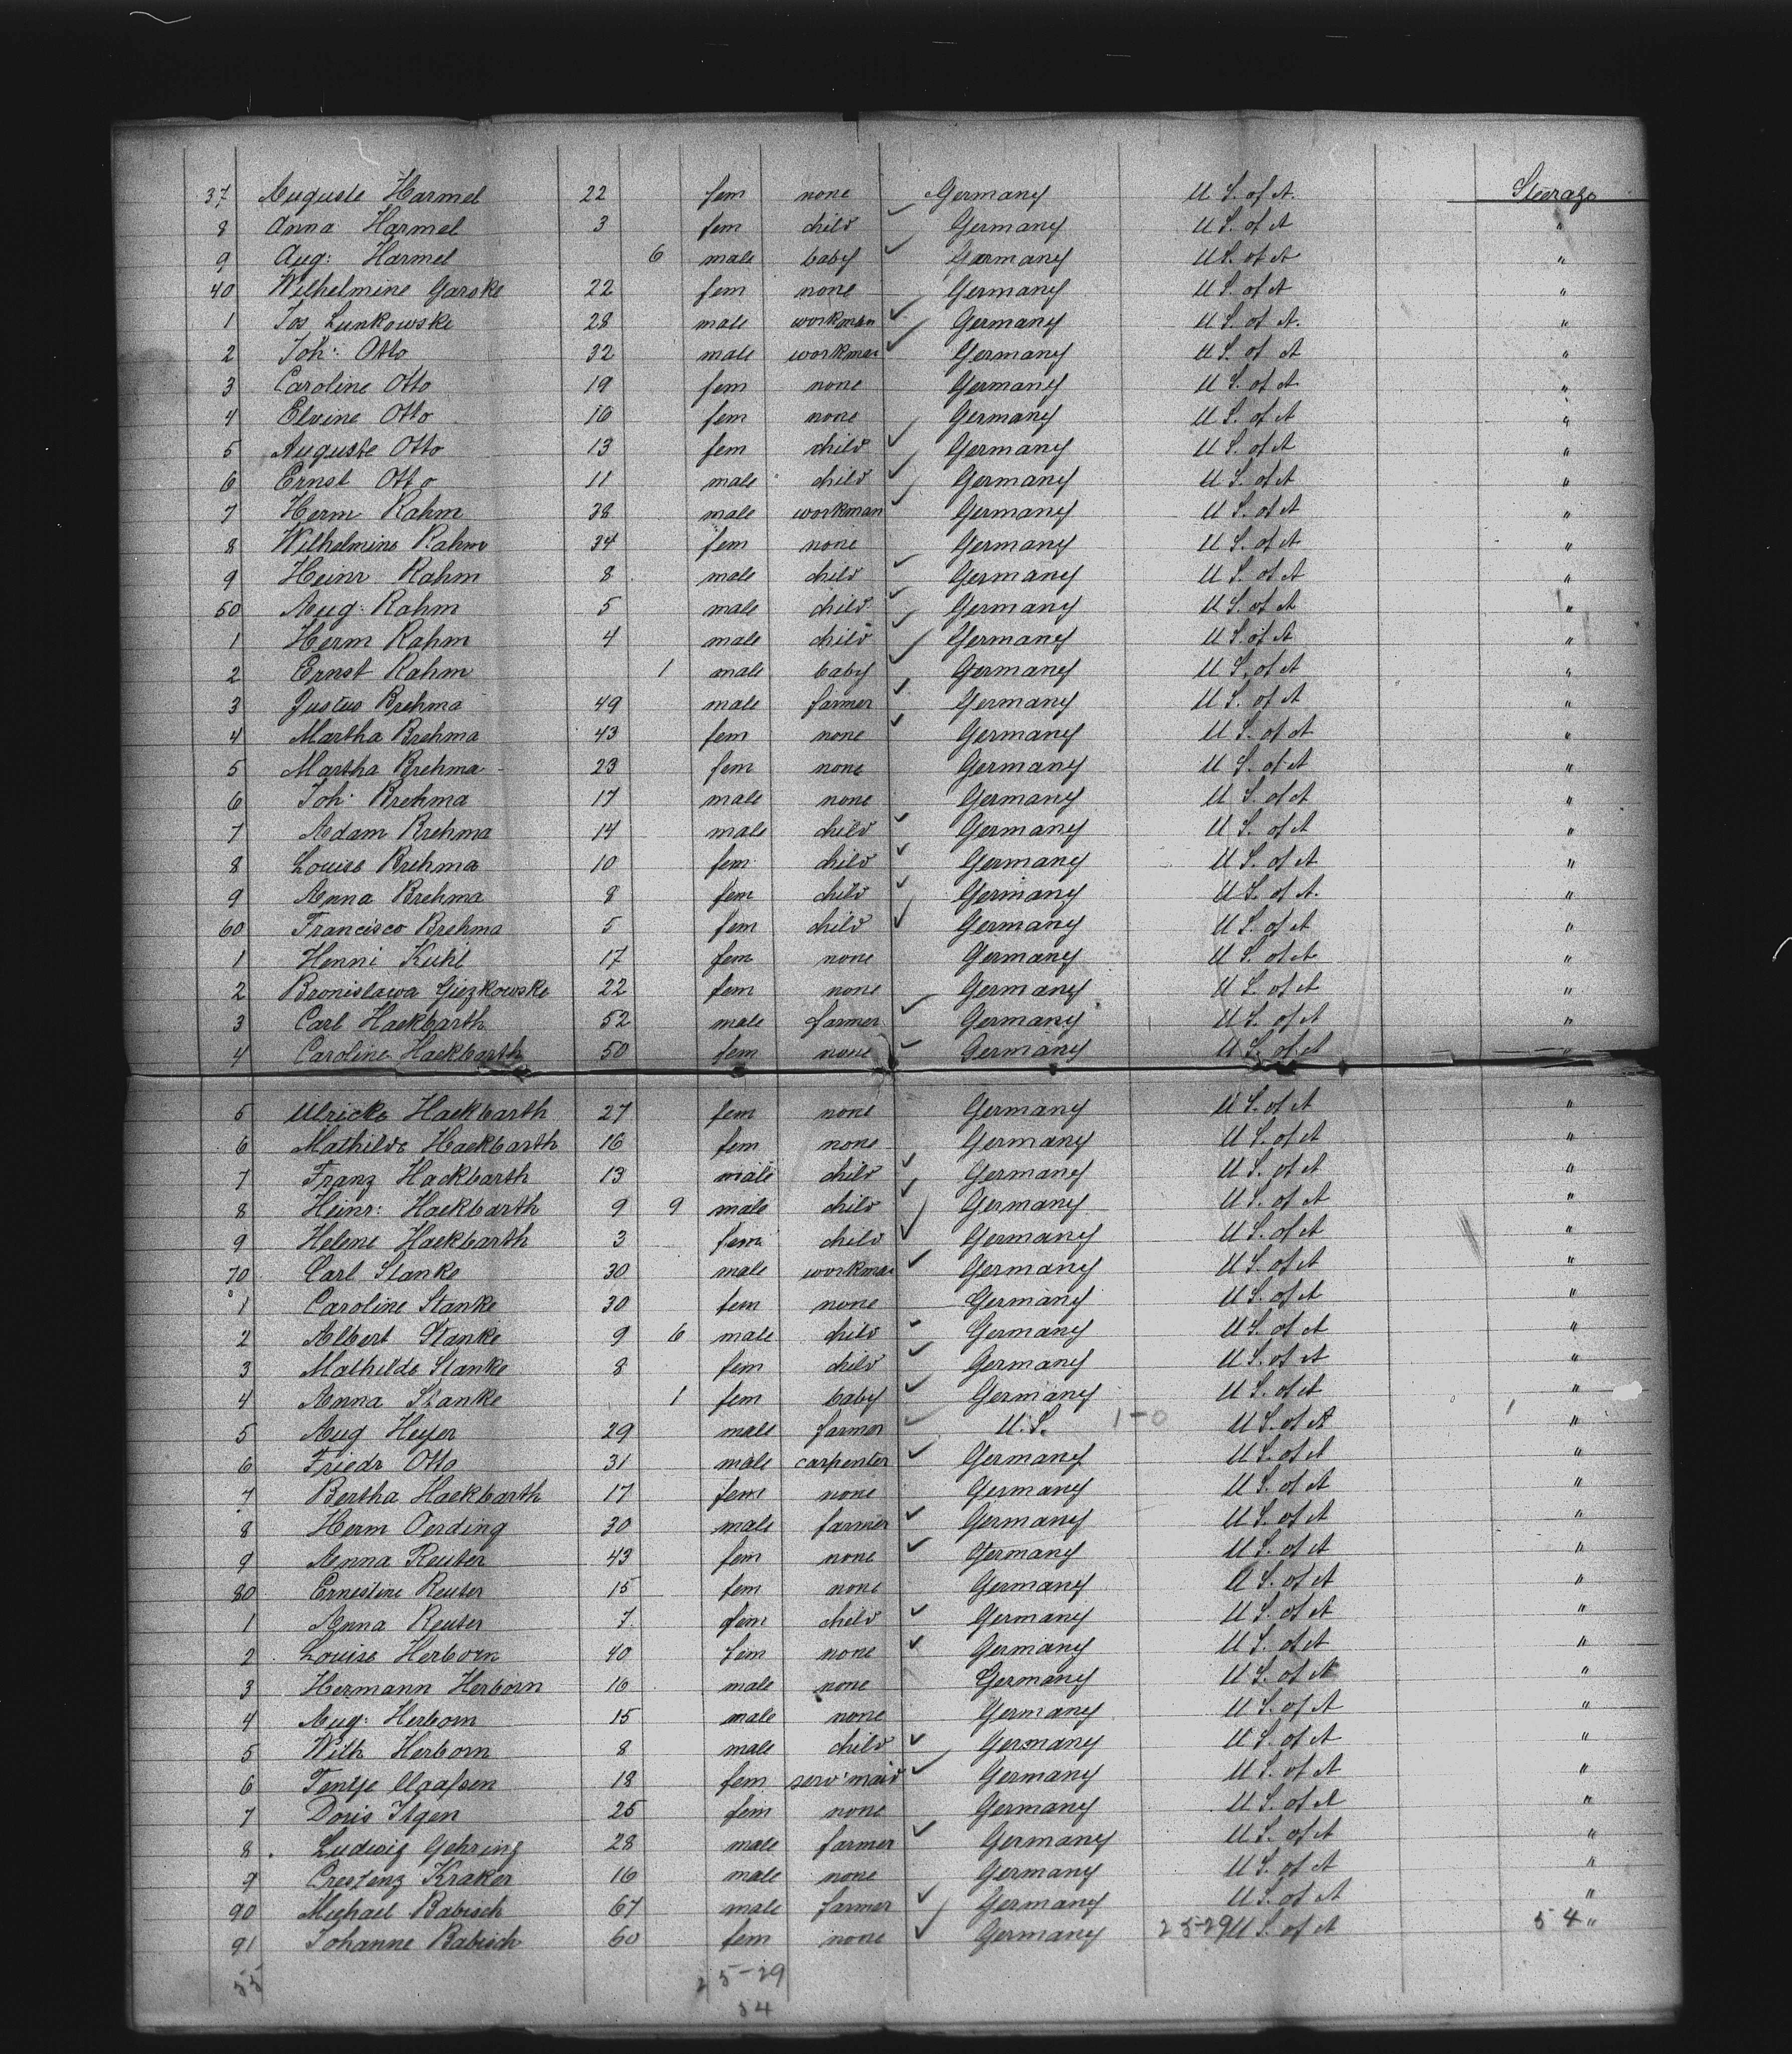 37 Auguste Harmel 22 fem none Germany U S. of A. Steerage
8 Anna Harmel 3 fem child Germany U S. of A "
9 Aug: Harmel 6 male baby Germany U S. of A "
40 Wilhelmine Garske 22 fem none Germany U S. of A "
1 Jos Lunkowske 28 male workman Germany U S. of A. "
2 Joh: Otto 32 male workman Germany U S. of A "
3 Caroline Otto 19 fem none Germany U S. of A "
4 Elvine Otto 16 fem none Germany U S. of A "
5 Auguste Otto 13 fem child Germany U S. of A "
6 Ernst Otto 11 male child Germany U S. of A "
7 Herm Rahm 38 male workman Germany U S. of A "
8 Wilhelmine Rahm 34 fem none Germany U S. of A "
9 Heinr Rahm 8 male child Germany U S. of A "
50 Aug: Rahm 5 male child Germany U S. of A "
1 Herm Rahm 4 male child Germany U S. of A "
2 Ernst Rahm 1 male baby Germany U S. of A "
3 Justus Brehma 49 male farmer Germany U S. of A "
4 Martha Brehma 43 fem none Germany U S. of A "
5 Martha Brehma 23 fem none Germany U S. of A "
6 Joh: Brehma 17 male none Germany U S. of A "
7 Adam Brehma 14 male child Germany U S. of A "
8 Louise Brehma 10 fem child Germany U S. of A "
9 Anna Brehma 8 fem child Germany U S. of A. "
60 Francisco Brehma 5 fem child Germany U S. of A "
1 Henni Kuhl 17 fem none Germany U S. of A "
2 Bronislawa Giezkowske 22 fem none Germany U S. of A "
3 Carl Hackbarth 52 male farmer Germany U S. of A "
4 Caroline Hackbarth 50 fem none Germany U S. of A "
5 Ulricke Hackbarth 27 fem none Germany U S. of A "
6 Mathilde Hackbarth 16 fem none Germany U S. of A "
7 Franz Hackbarth 13 male child Germany U S. of A "
8 Heinr: Hackbarth 9 9 male child Germany U S. of A "
9 Helene Hackbarth 3 fem child Germany U S. of A "
70 Carl Stanke 30 male workman Germany U S. of A "
1 Caroline Stanke 30 fem none Germany U S. of A "
2 Albert Stanke 9 6 male child Germany U S. of A "
3 Mathilde Stanke 8 fem child Germany U S. of A "
4 Anna Stanke 1 fem baby Germany U S. of A "
5 Aug Heyer 29 male farmer U. S. 1-0 U S. of A "
6 Friedr Otto 31 male carpenter Germany U S. of A "
7 Bertha Hackbarth 17 fem none Germany U S. of A "
8 Herm Oerding 30 male farmer Germany U S. of A "
9 Anna Reuter 43 fem none Germany U S. of A "
80 Ernestine Reuter 15 fem none Germany U S. of A "
1 Anna Reuter 7 fem child Germany U S. of A "
2 Louise Herborn 40 fem none Germany U S. of A "
3 Hermann Herborn 16 male none Germany U S. of A "
4 Aug: Herborn 15 male none Germany U S. of A "
5 Wilh Herborn 8 male child Germany U S. of A "
6 Tentje Claafsen 18 fem serv maid Germany U S. of A "
7 Doris Itgen 25 fem none Germany U S. of A "
8 Ludwig Gehring 28 male farmer Germany U S. of A "
9 Crestenz Kraker 16 male none Germany U S. of A "
90 Michael Babisch 67 male farmer Germany U S. of A "
91 Johanne Babisch 60 fem none Germany 25-29 U S. of A 54 "
55 25-29
54